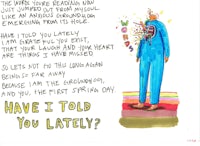 THE WORDS YOU'RE READING NOW
JUST JUMPED OUT FROM MY SOUL
LIKE AN ANXIOUS GROUNDHOG
EMERGING FROM ITS HOLE.
HAVE I TOLD YOU LATELY
I AM GRATEFUL YOU EXIST,
THAT YOUR LAUGH AND YOUR HEART
ARE THINGS I HAVE MISSED
SO LETS NOT GO THIS LONG AGAIN
BEING SO FAR AWAY
BECAUSE I AM THE GROUNDHOG,
AND YOU, THE FIRST SPRING DAY.
HAVE I TOLD
YOU LATELY?